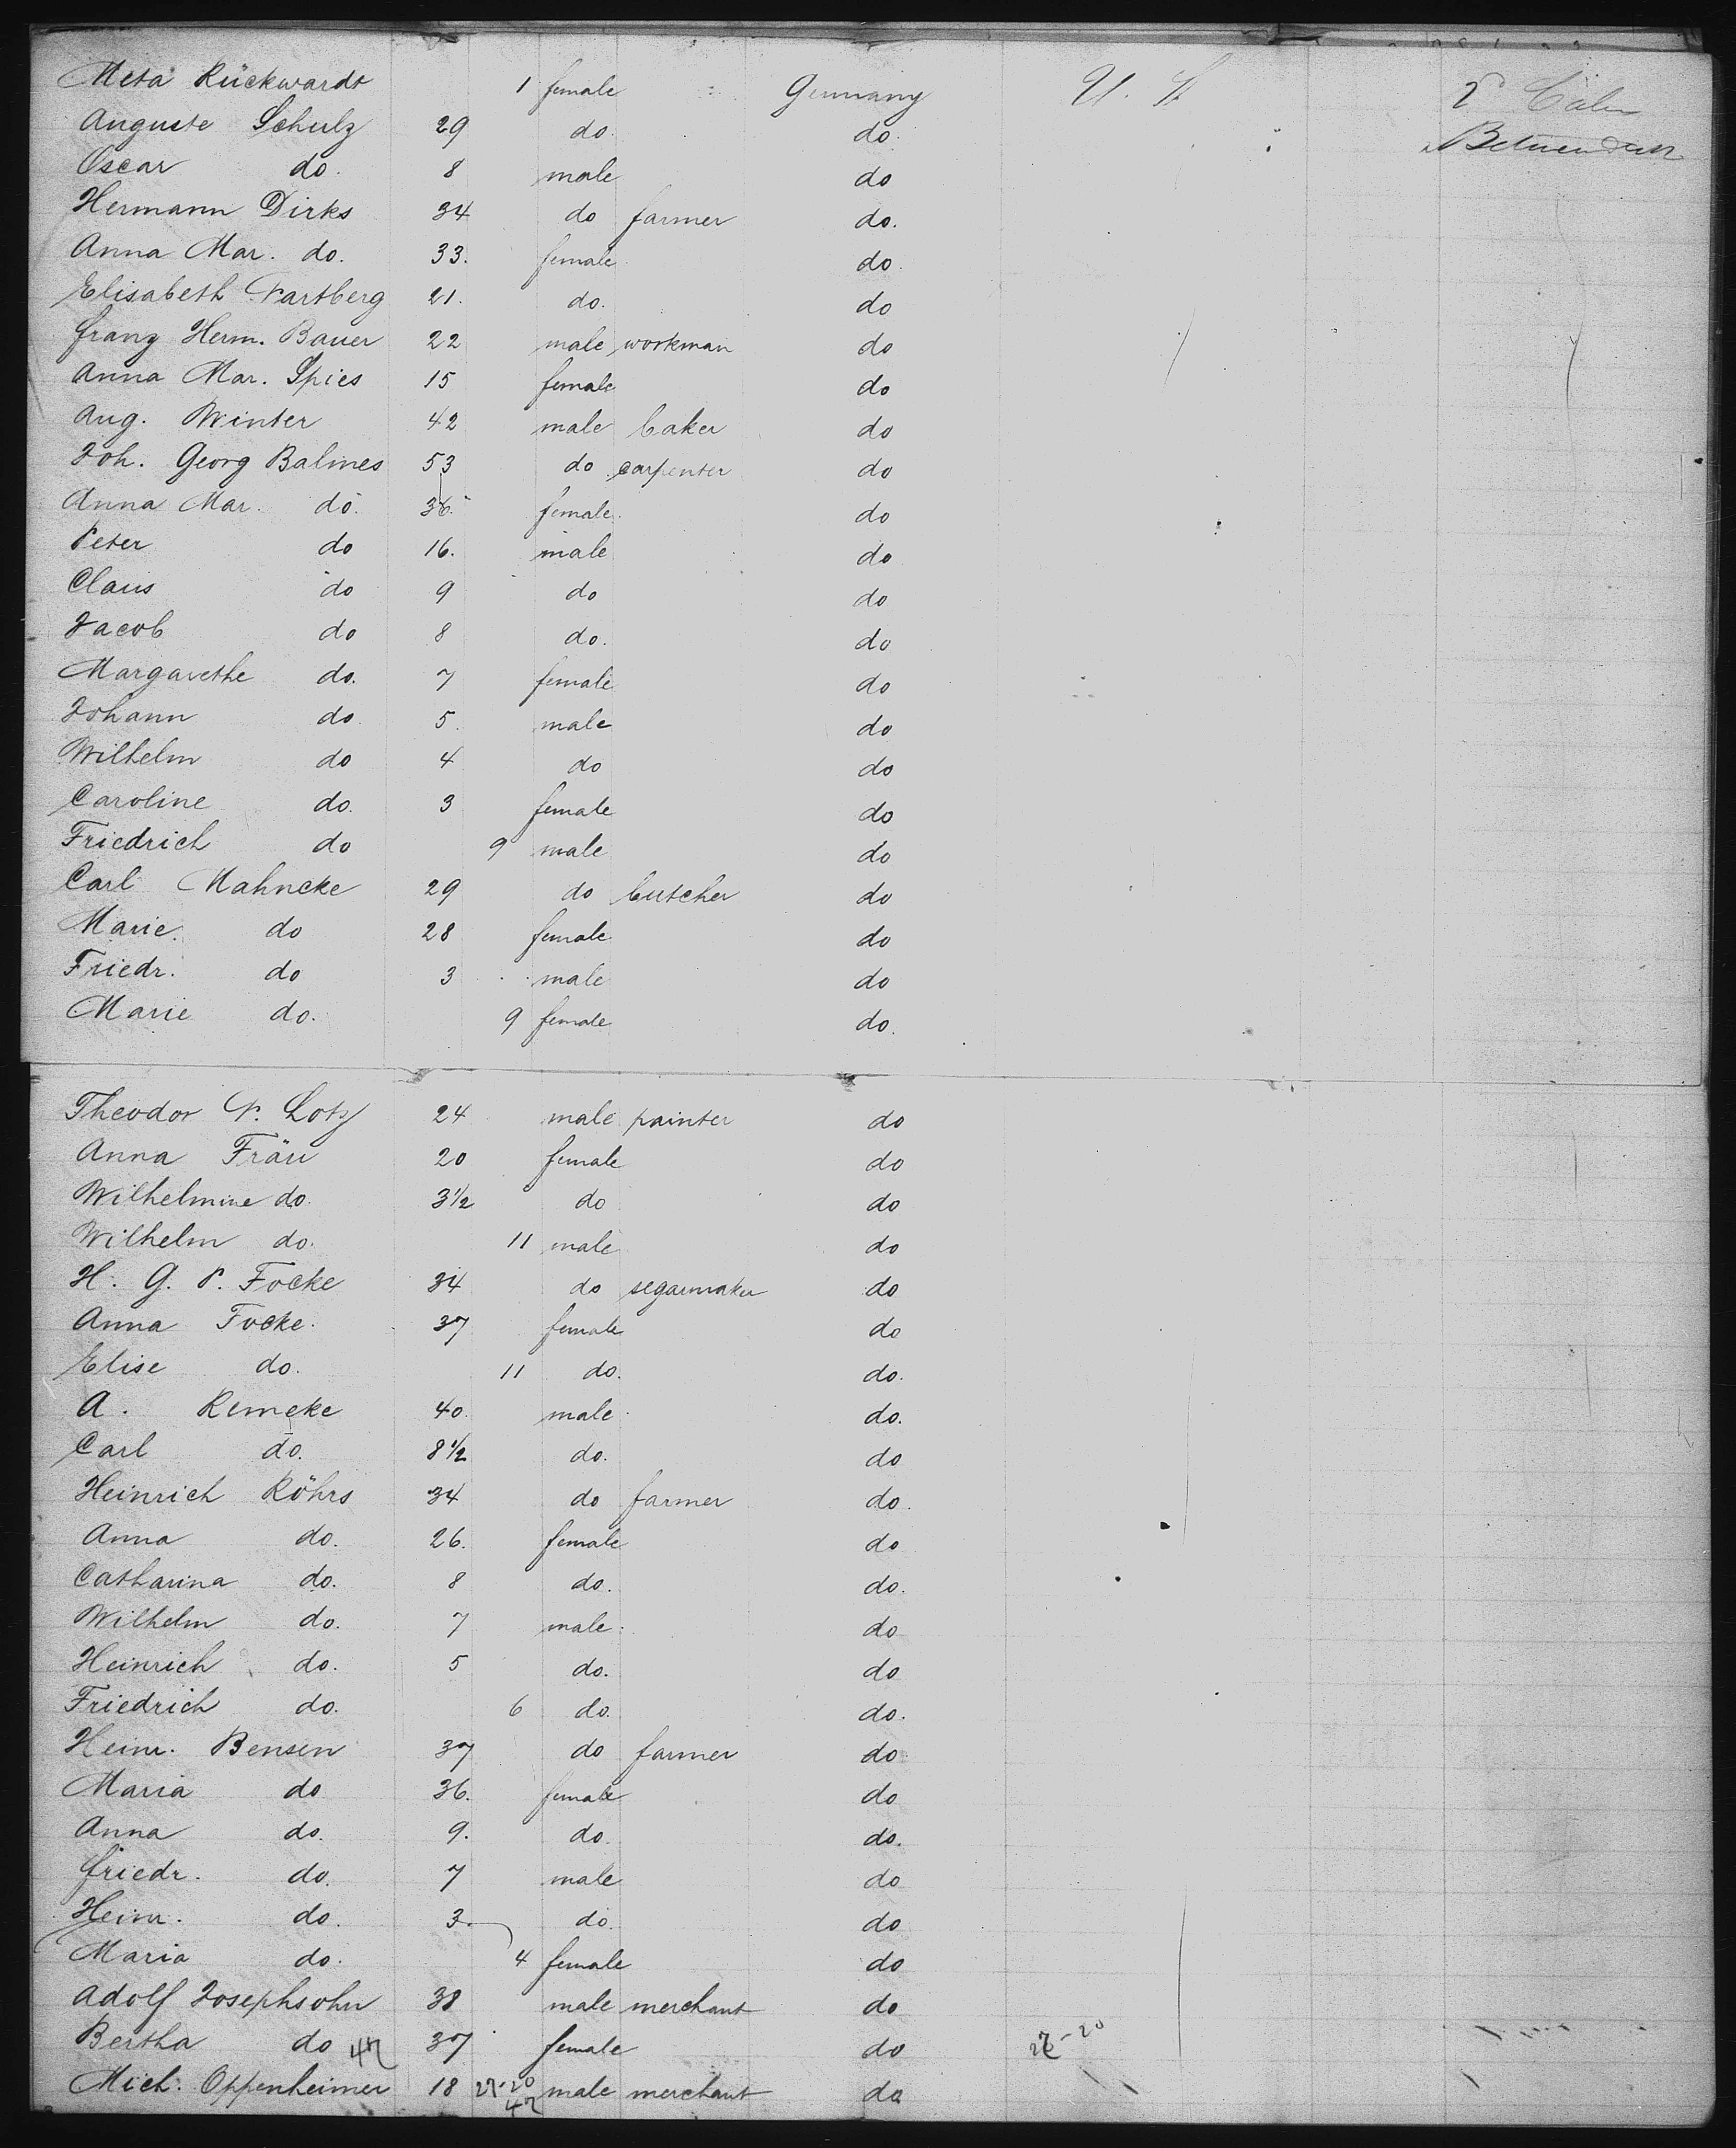 Meta Rückwardt 1 female Germany U. S 2d Cabin
Auguste Schulz 29 do. do. Between deck
Oscar do. 8 male do
Hermann Dirks 34 do farmer do.
Anna Mar. do. 33. female do.
Elisabeth Wartberg 21. do. do
Franz Herm. Bauer 22 male workman do
Anna Mar. Spies 15 female do
Aug. Winter 42 male baker do
Joh. Georg Balmes 53 do carpenter do
Anna Mar. do. 36. female. do
Peter do 16. male do
Claus do 9 do do
Jacob do 8 do. do
Margarethe do. 7 female do
Johann do 5. male do
Wilhelm do 4 do do
Caroline do. 3 female do
Friedrich do 9 male do
Carl Mahncke 29 do butcher do
Marie. do 28 female do
Friedr. do 3 male do
Marie do. 9 female do.
Theodor W. Lotz 24 male painter do
Anna Fräu 20 female do
Wilhelmine do. 3 1/2 do do
Wilhelm do. 11 male do
H. G. P. Focke 34 do segarmaker do
Anna Focke. 37 female do
Elise do. 11 do. do.
A. Remcke 40. male do.
Carl do. 8 1/2 do. do
Heinrich Röhrs 34 do farmer do.
Anna do. 26. female do
Catharina do. 8 do. do.
Wilhelm do. 7 male. do
Heinrich do. 5 do. do
Friedrich do. 6 do. do.
Heinr. Bensen 37 do farmer do
Maria do 36. female do
Anna do. 9. do. do.
Friedr. do. 7 male do
Heinr. do. 3. do. do
Maria do. 4 female do
Adolf Josephsohn 38 male merchant do
Bertha do 42 37 female do 27-20
Mich. Oppenheimer 18 27-20 male merchant do
42